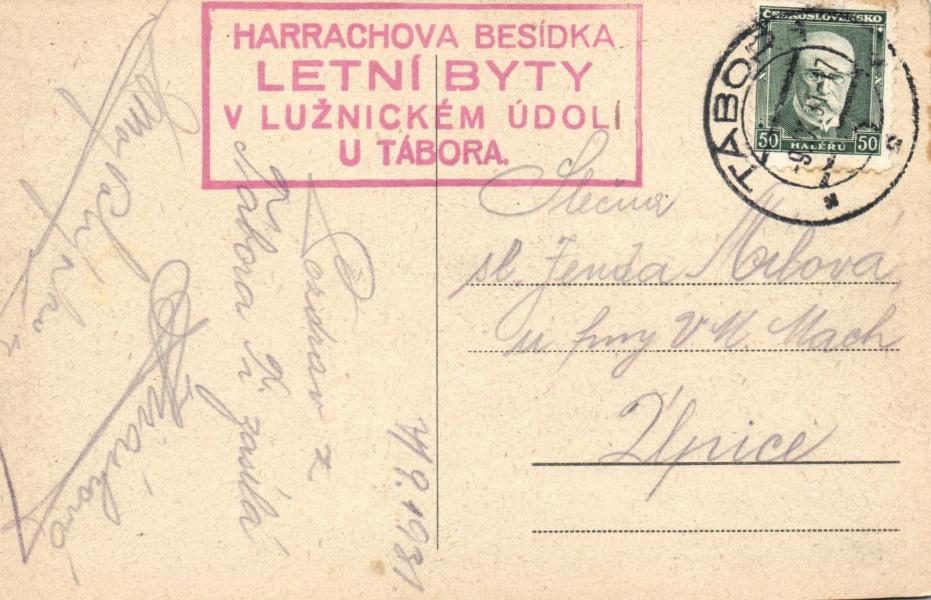 HARRACHOVA BESÍDKA
LETNÍ BYTY
V LUŽNICKÉM ÚDOLÍ
U TÁBORA.
ČESKOSLOVENSKO
50 HALÉŘŮ 50
TÁBOR
Slečna
sl. Jenda
u fmy V. M. Mach
Úpice
Pozdrav z
Tábora Ti zasílá
1931